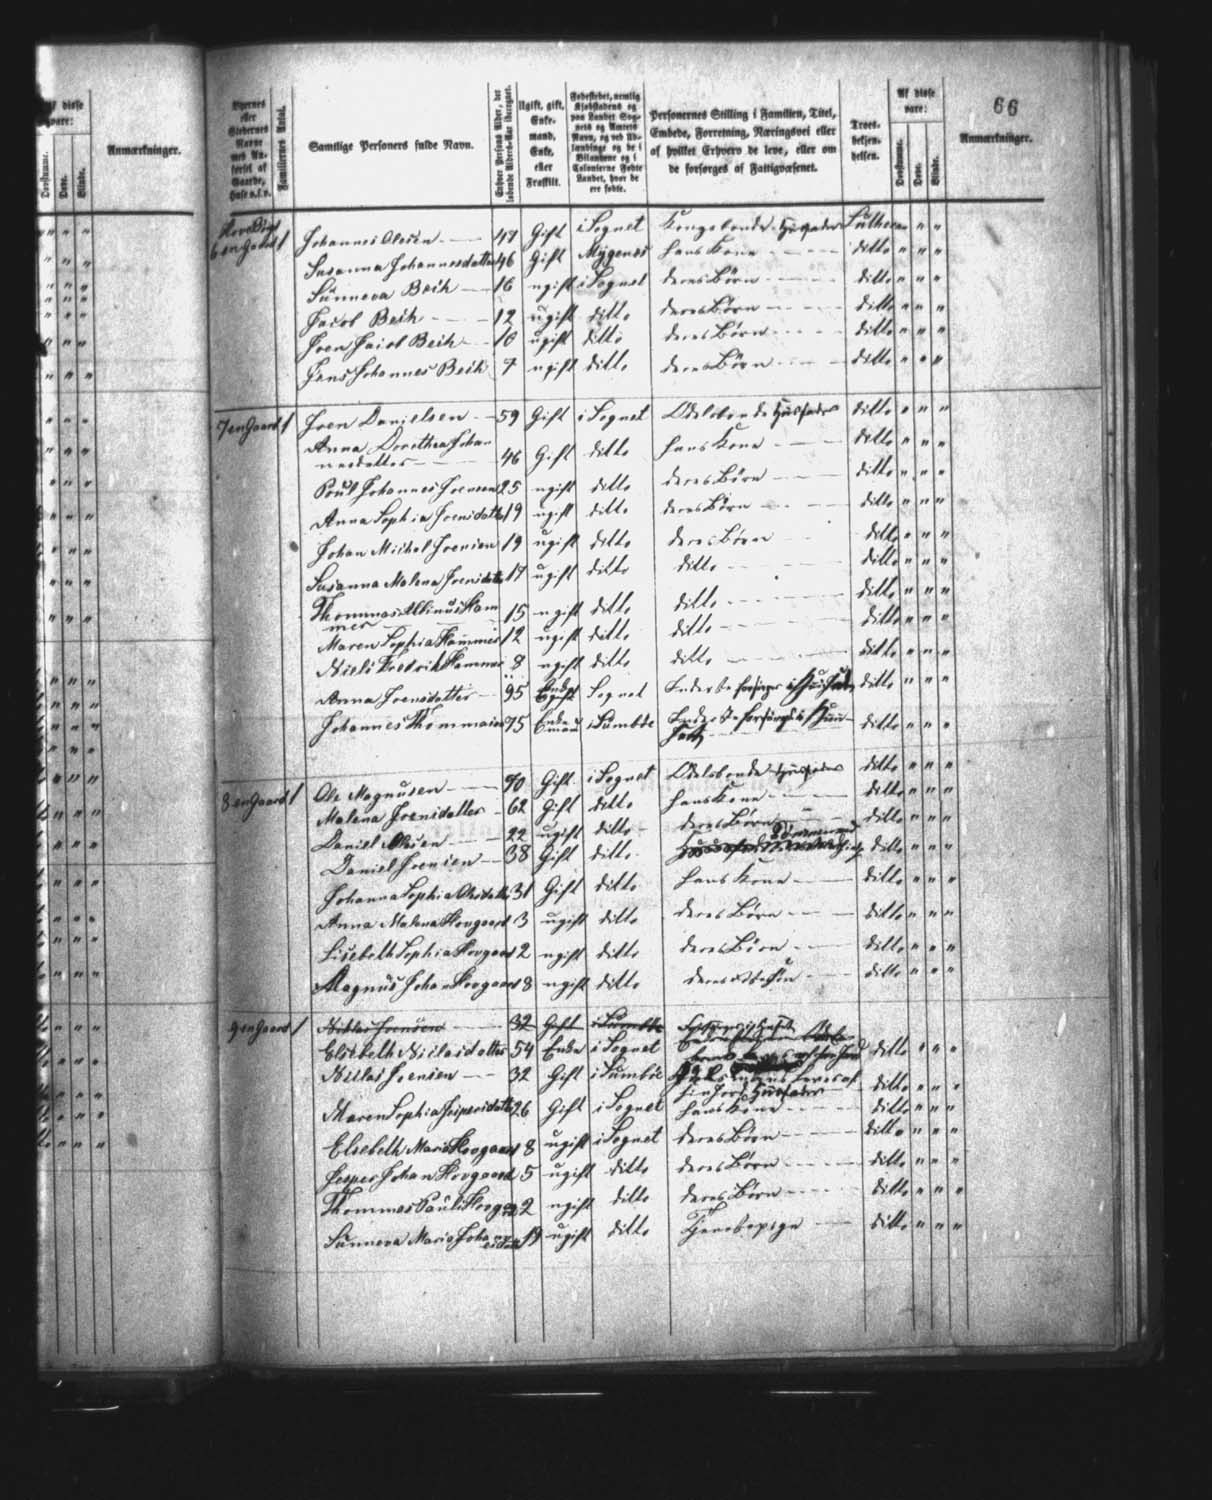 66
Af disse vare:
Døvstumme. Døve. Blinde.
Anmærkninger.
Byernes eller Stedernes Navne med Anførsel af Gaarde, Huse o.s.v.
Familiernes Antal.
Samtlige Personers fulde Navn.
Enhver Persons Alder, det løbende Alders-Aar iberegnet.
Ugift, gift, Enkemand, Enke, eller Fraskilt.
Fødestedet, nemlig Kjøbstadens og paa Landet Sognets og Amtets Navn, og ved Udlændinge og de i Bilandene og i Colonierne Fødte Landet, hvor de ere fødte.
Personernes Stilling i Familien, Titel, Embede, Forretning, Næringsvei eller af hvilket Erhverv de leve, eller om de forsørges af Fattigvæsenet.
Troesbekjendelsen.
Af disse vare:
Døvstumme. Døve. Blinde.
Anmærkninger.
6 en Gaard 1 Johannes Olesen 47 Gift i Sognet Kongsbonde Husfader Luthersk " " "
Susanna Johannesdatter 46 Gift Mygenes hans Kone ditto " " "
Sunneva Beik 16 ugift i Sognet deres Børn ditto " " "
Jacob Beik 12 ugift ditto deres Børn ditto " " "
Joen Jacob Beik 10 ugift ditto deres Børn ditto " " "
Jens Johannes Beik 7 ugift ditto deres Børn ditto " " "
7 en Gaard 1 Joen Danielsen 59 Gift i Sognet Odelsbonde Husfader ditto " " "
Anna Dorothea Johan
nesdatter 46 Gift ditto hans Kone ditto " " "
Poul Johannes Joensen 25 ugift ditto deres Børn ditto " " "
Anna Sophia Joensdatter 19 ugift ditto deres Børn ditto " " "
Johan Michel Joensen 19 ugift ditto deres Børn ditto " " "
Susanna Malena Joensdatter 17 ugift ditto ditto ditto " " "
Thommas Albinus Ham
mer 15 ugift ditto ditto ditto " " "
Maren Sophia Hammer 12 ugift ditto ditto ditto " " "
Niels Fredrik Hammer 8 ugift ditto ditto ditto " " "
Anna Joensdatter 95 Enke Sognet ditto " " "
Johannes Thommasen 75 Enke
mand i Sumbøe ditto " " "
8 en Gaard 1 Ole Magnusen 70 Gift i Sognet Odelsbonde Husfader ditto " " "
Malena Joensdatter 62 Gift ditto hans Kone ditto " " "
Daniel Olesen 22 ugift ditto deres Børn ditto " " "
Daniel Joensen 38 Gift ditto ditto " " "
Johanna Sophia Olesdatter 31 Gift ditto hans Kone ditto " " "
Anna Malena Hovgaard 3 ugift ditto deres Børn ditto " " "
Lisebeth Sophia Hovgaard 2 ugift ditto deres Børn ditto " " "
Magnus Johan Hovgaard 8 ugift ditto ditto " " "
9 en Gaard 1 Niklas Joensen 32 Gift i Sumbøe
Elsebeth Nielsdatter 54 Enke i Sognet ditto " " "
Niklas Joensen 32 Gift i Sumbøe
sin Jord Husfader ditto " " "
Maren Sophia Jespersdatter 26 Gift i Sognet hans Kone ditto " " "
Elsebeth Maria Hovgaard 8 ugift i Sognet deres Børn ditto " " "
Jesper Johan Hovgaard 5 ugift ditto deres Børn ditto " " "
Thommas Pauli Hovgaard 2 ugift ditto deres Børn ditto " " "
Sunneva Maria 19 ugift ditto Tjenestepige ditto " " "